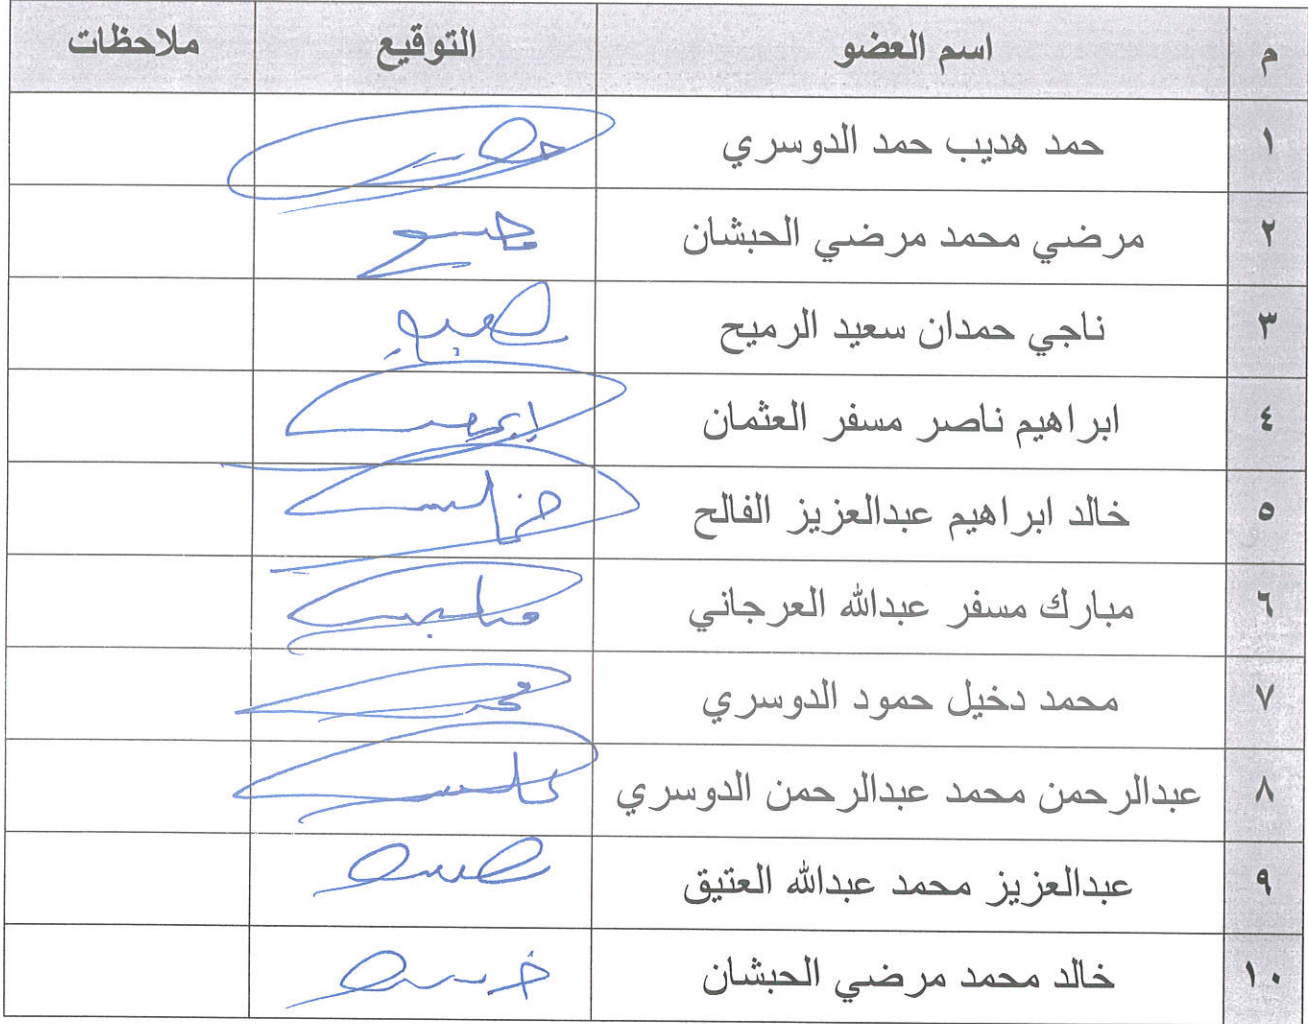 م اسم العضو التوقيع ملاحظات
١ حمد هديب حمد الدوسري
٢ مرضي محمد مرضي الحبشان
٣ ناجي حمدان سعيد الرميح
٤ ابراهيم ناصر مسفر العثمان
٥ خالد ابراهيم عبدالعزيز الفالح
٦ مبارك مسفر عبدالله العرجاني
٧ محمد دخيل حمود الدوسري
٨ عبدالرحمن محمد عبدالرحمن الدوسري
٩ عبدالعزيز محمد عبدالله العتيق
١٠ خالد محمد مرضي الحبشان